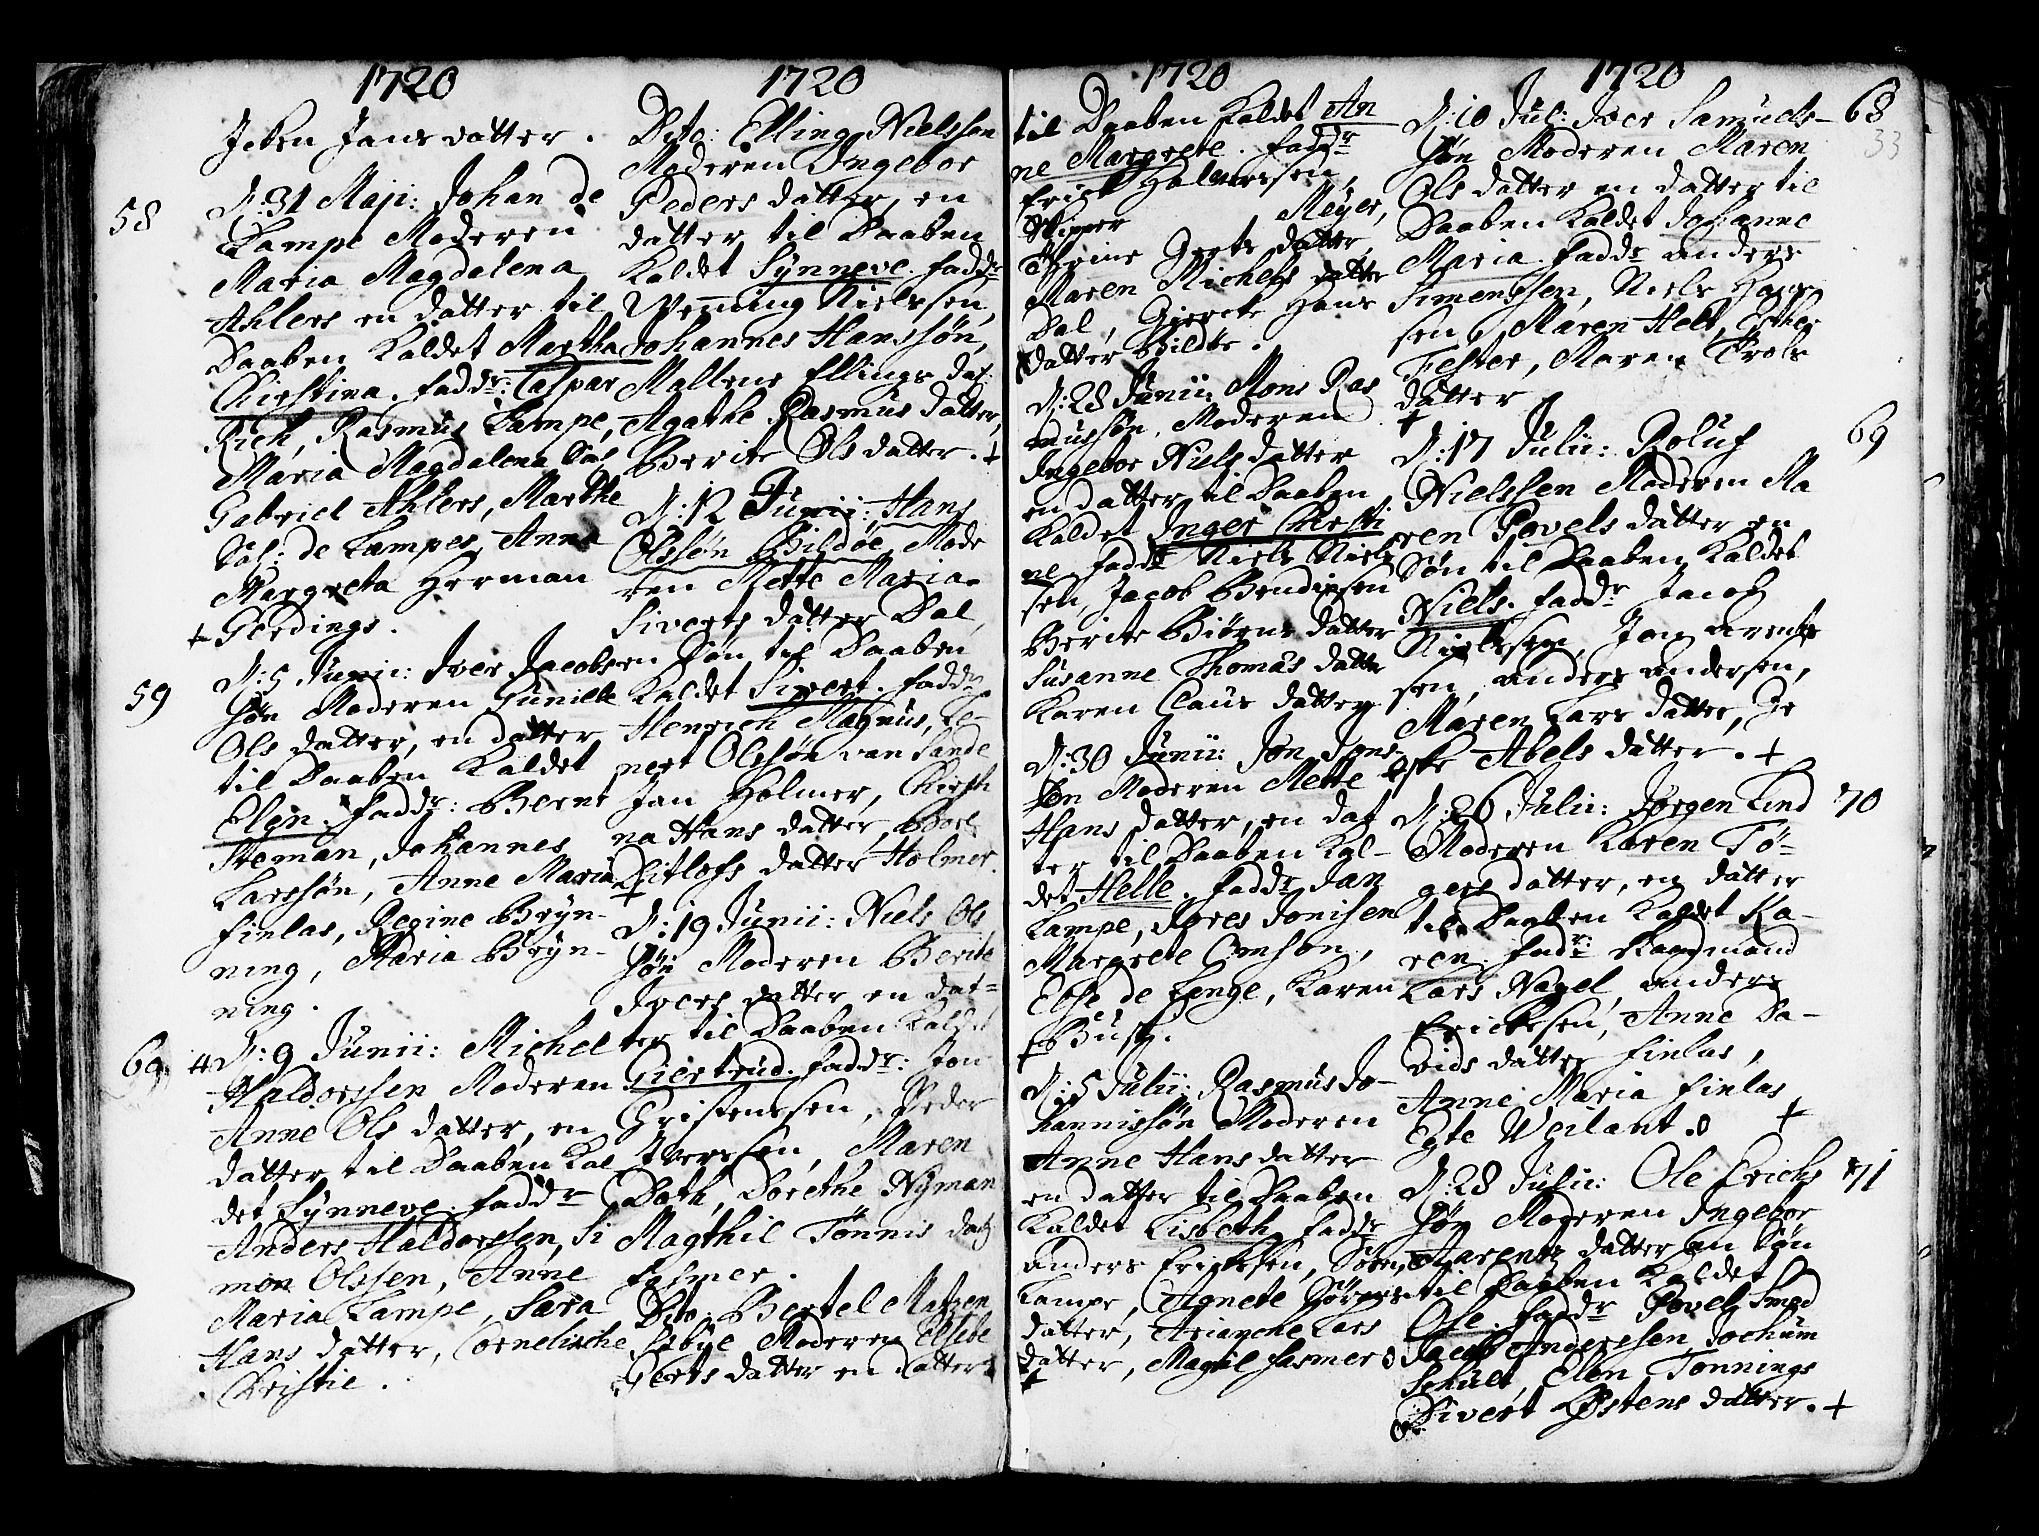 1720
Jeben Jans datter.
58
D: 31 Maji: Johan de
Lampe Moderen
Maria Magdalena
Ahlers en datter til
Daaben Kaldet Martha
Christina. fadd<sup>r</sup>: Caspar
Rich, Rasmus Lampe,
Maria Magdalena Sal:
Gabriel Ahlers, Marthe
Sal: de Lampes, Anna
Margreta Herman
+ Gerdings.
59
D: 5 Junii: Iver Jacobs
søn Moderen Gunille
Ols datter, en datter
til Daaben Kaldet
Elen. fadd<sup>r</sup>: Bernt
Steman, Johannes
Larssøn, Anne Maria
Finlas, Regine Bryn-
ning, Maria Bryn-
ning.
60
D: 9 Junii: Michel
Haldorssen Moderen
Anne Ols datter, en
datter til Daaben Kal
det Synneve. fadd<sup>r</sup>
Anders Haldorssen, Si
mon Olssen, Anne
Maria Lampe, Sara
Hans datter, Cornelische
Christie.
1720
Dito: Elling Nielssøn
Moderen Ingebor
Peders datter, en
datter til Daaben
Kaldet Synneve. fadd<sup>r</sup>
Wenning Nielssen,
Johannes Hanssøn,
Mallene Ellings dat:
Agathe Rasmus datter,
Berite Ols datter. +
D: 12 Junii: Hans
Olssøn Bildøe, Mode
ren Mette Maria
Siverts datter Dal,
en søn til Daaben
Kaldet Sivert. fadd<sup>r</sup>
Henrich Magnus, Le-
nert Olssøn van Sande
Jan Holmer, Kirsti
na Hans datter, Boel
Ditlofs datter Holmer.
+
D: 19 Junii: Niels Ols
søn Moderen Berite
Ivers datter en dat-
ter til Daaben Kaldet
Giertrud. fadd<sup>r</sup>: Jon
Christenssen, Peder
Iverssen, Maren
Both, Dorethe Nyman
Magthil Tønnis dat:
Fasmer.
Dito: Bertel Matzen
Assbye Moderen Elsebe
Gerts datter en datter
1720
til Daaben Kaldet An
ne Margrete. fadd<sup>r</sup>
Erich Halvorssen,
Skipper Meyer,
Thrine Gerts datter
Maren Michels datter
Dal, Gjerete Hans
datter Bildøe.
D: 28 Junii: Mons Ras
mussøn, Moderen
Ingebor Niels datter
en datter til Daaben
Kaldet Inger Christi
ne. fadd<sup>r</sup> Niels Niels
sen, Jacob Bendixsen
Berite Biørns datter
Susanne Thomas datter
Karen Claus datter
D: 30 Junii: Jon Jons-
søn Moderen Mette
Hans datter, en dat
ter til Daaben Kal-
det Helle. fadd<sup>r</sup> Jan
Lampe, Jores Jonisen
Margrete Omsøn,
Else de Lenge, Karen
Busk.
+
D: 5 Julii: Rasmus Jo-
hannissøn Moderen
Anne Hans datter
en datter til Daaben
Kaldet Lisbeth. fadd<sup>r</sup>
Anders Erichssen, Søren
Lampe, Agnete Jørgens
datter, Arianche Lars
datter, Magtil Fasmer
+
1720
68
33
D: 10 Jul: Iver Samuels-
søn Moderen Maren
Ols datter en datter til
Daaben Kaldet Johanne
Maria. fadd<sup>r</sup> Anders
Simenssen, Niels Hans
sen, Maren Helt, Esther
Fester, Maren Trols
datter
+
69
D: 17 Julii: Roluf
Nielssen Moderen Ma
ren Povels datter en
søn til Daaben Kaldet
Niels. fadd<sup>r</sup> Jacob
Nielssen, Jon Arents
sen, Anders Andersen,
Maren Lars datter, Je
ske Abels datter. +
70
D: 26 Julii: Jørgen Lind
Moderen Karen Tø-
gers datter, en datter
til Daaben Kaldet Ka-
ren. fadd<sup>r</sup>: Raadmand
Lars Nagel, Anders
Erichssen, Anne Da-
vids datter Finlas,
Anne Maria Finlas
Egte Weilant. +
71
D: 28 Julii: Ole Erichs
søn Moderen Ingebor
Aarentz datter en søn
til Daaben Kaldet
Ole. fadd<sup>r</sup> Povel Smed
Jacob Anderssen, Jochum
Schult, Elen Tonnings
Sivert Østens datter. +